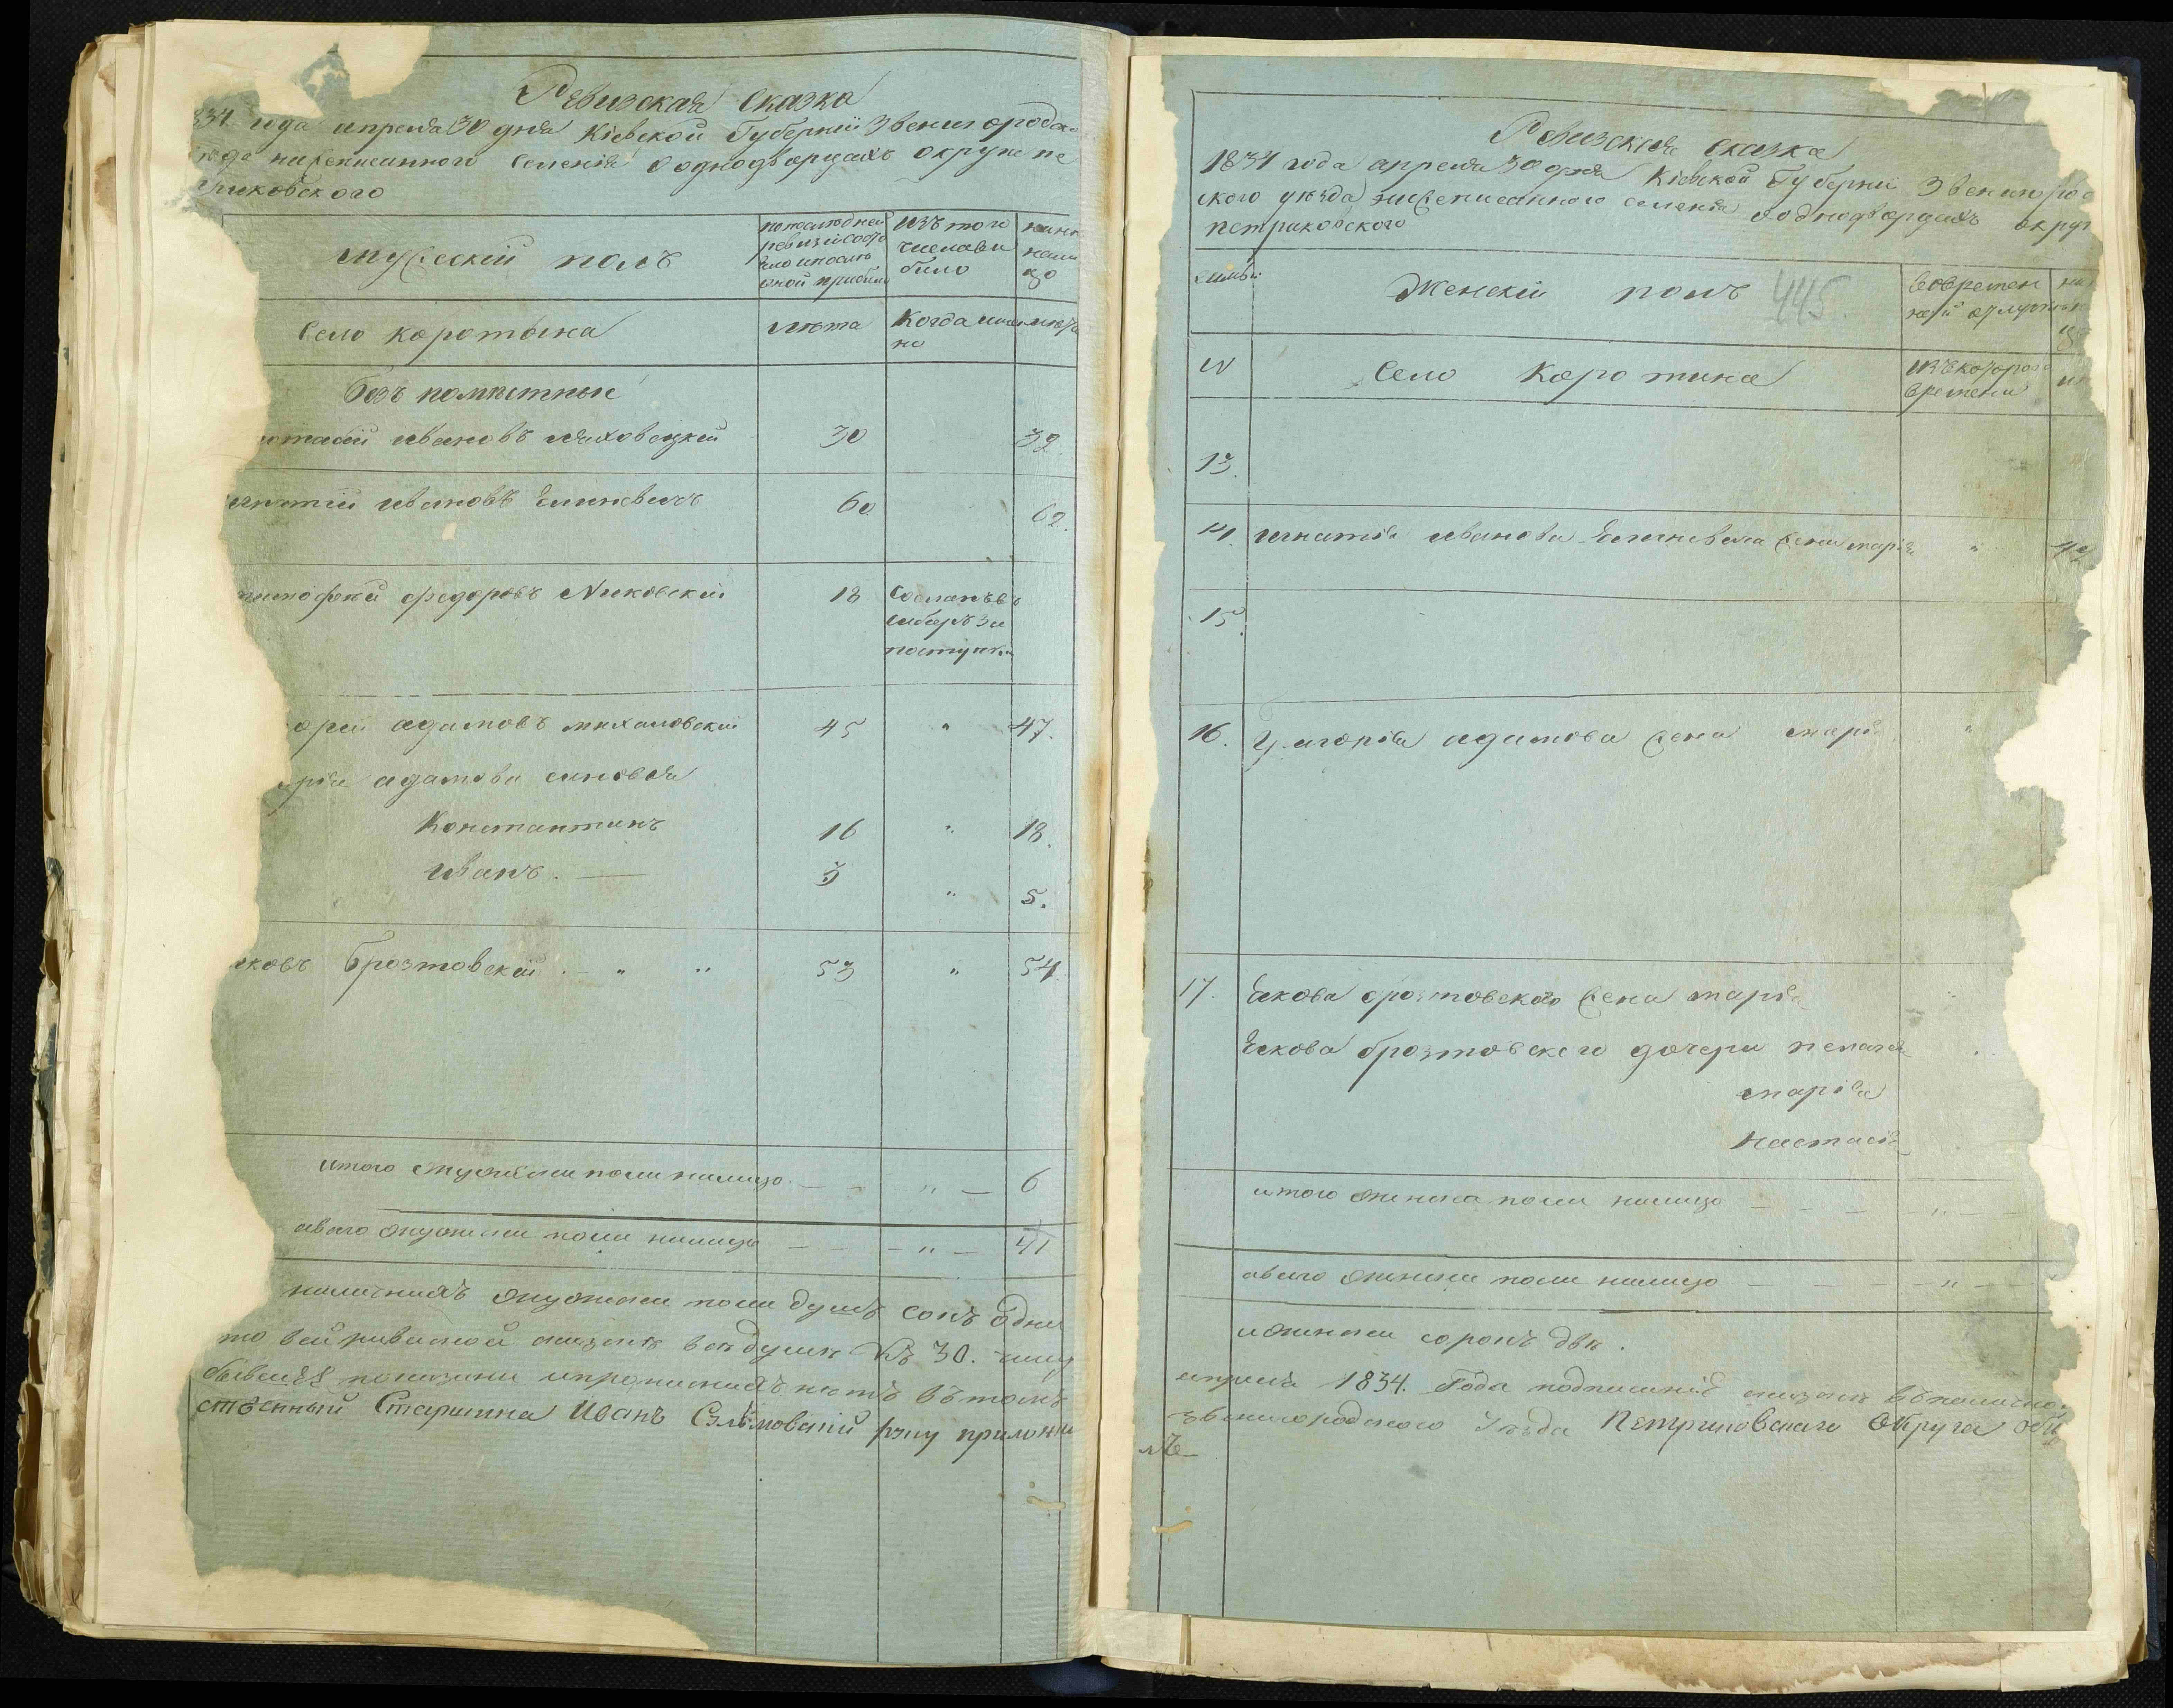 Ревизская сказка
834 года апреля 30 дня Кіевской Губерніи Звенигородско
нижеписанного Селенія о однодворцахъ округи пе
риковского
мужескій полъ
по последней
ревизіи состо
яло и после
оной прибыло
Изъ того
числа вы
было
ныне
нали
цо
Село коротина
лета
Когда имен
но
лета
безъ поместные
отасій ивановъ Ляховецкій 30 32
игнатій ивановъ Елиневичъ 60 62.
тимофей федоровъ Яиковскій 18 Сосланъ въ
сибирь за
поступки
орій адамовъ михаловскій 45 " 47.
орія адамова сыновья
Константинъ 16 " 18.
иванъ. — 3 " 5.
яковъ Брозтовскій. " " 53 " 54
итого мужеска пола налицо — — " — 6
а всего мужеска пола налицо — — " — 41
наличныхъ мужеска пола душъ сокъ одна
то
бывшея показаны и прописныхъ нетъ въ томъ
ственный Старшина Иванъ руку приложи
Ревизская сказка
1834 года апреля 30 дня Кіевской Губерніи Звенигород
ского уезда нижеписанного селенія о однодворцахъ округ
петриковского
семьи
Женскій полъ
445.
Во времен
ной отлучке
№
Село Коротина
изъ которого
времени
13.
14. игнатія иванова Елиневича жена марія "
15.
16. Григорія адамова жена марі "
17. Екова брозтовского жена марія
Екова брозтовского дочери пелагея
марія
Настасія
итого женска пола налицо — — — — " —
а всего женска пола налицо — — — — " —
и женска сорокъ две.
апреля 1834. Года
звенигородского Уезда Петриковскаго Округа Общ